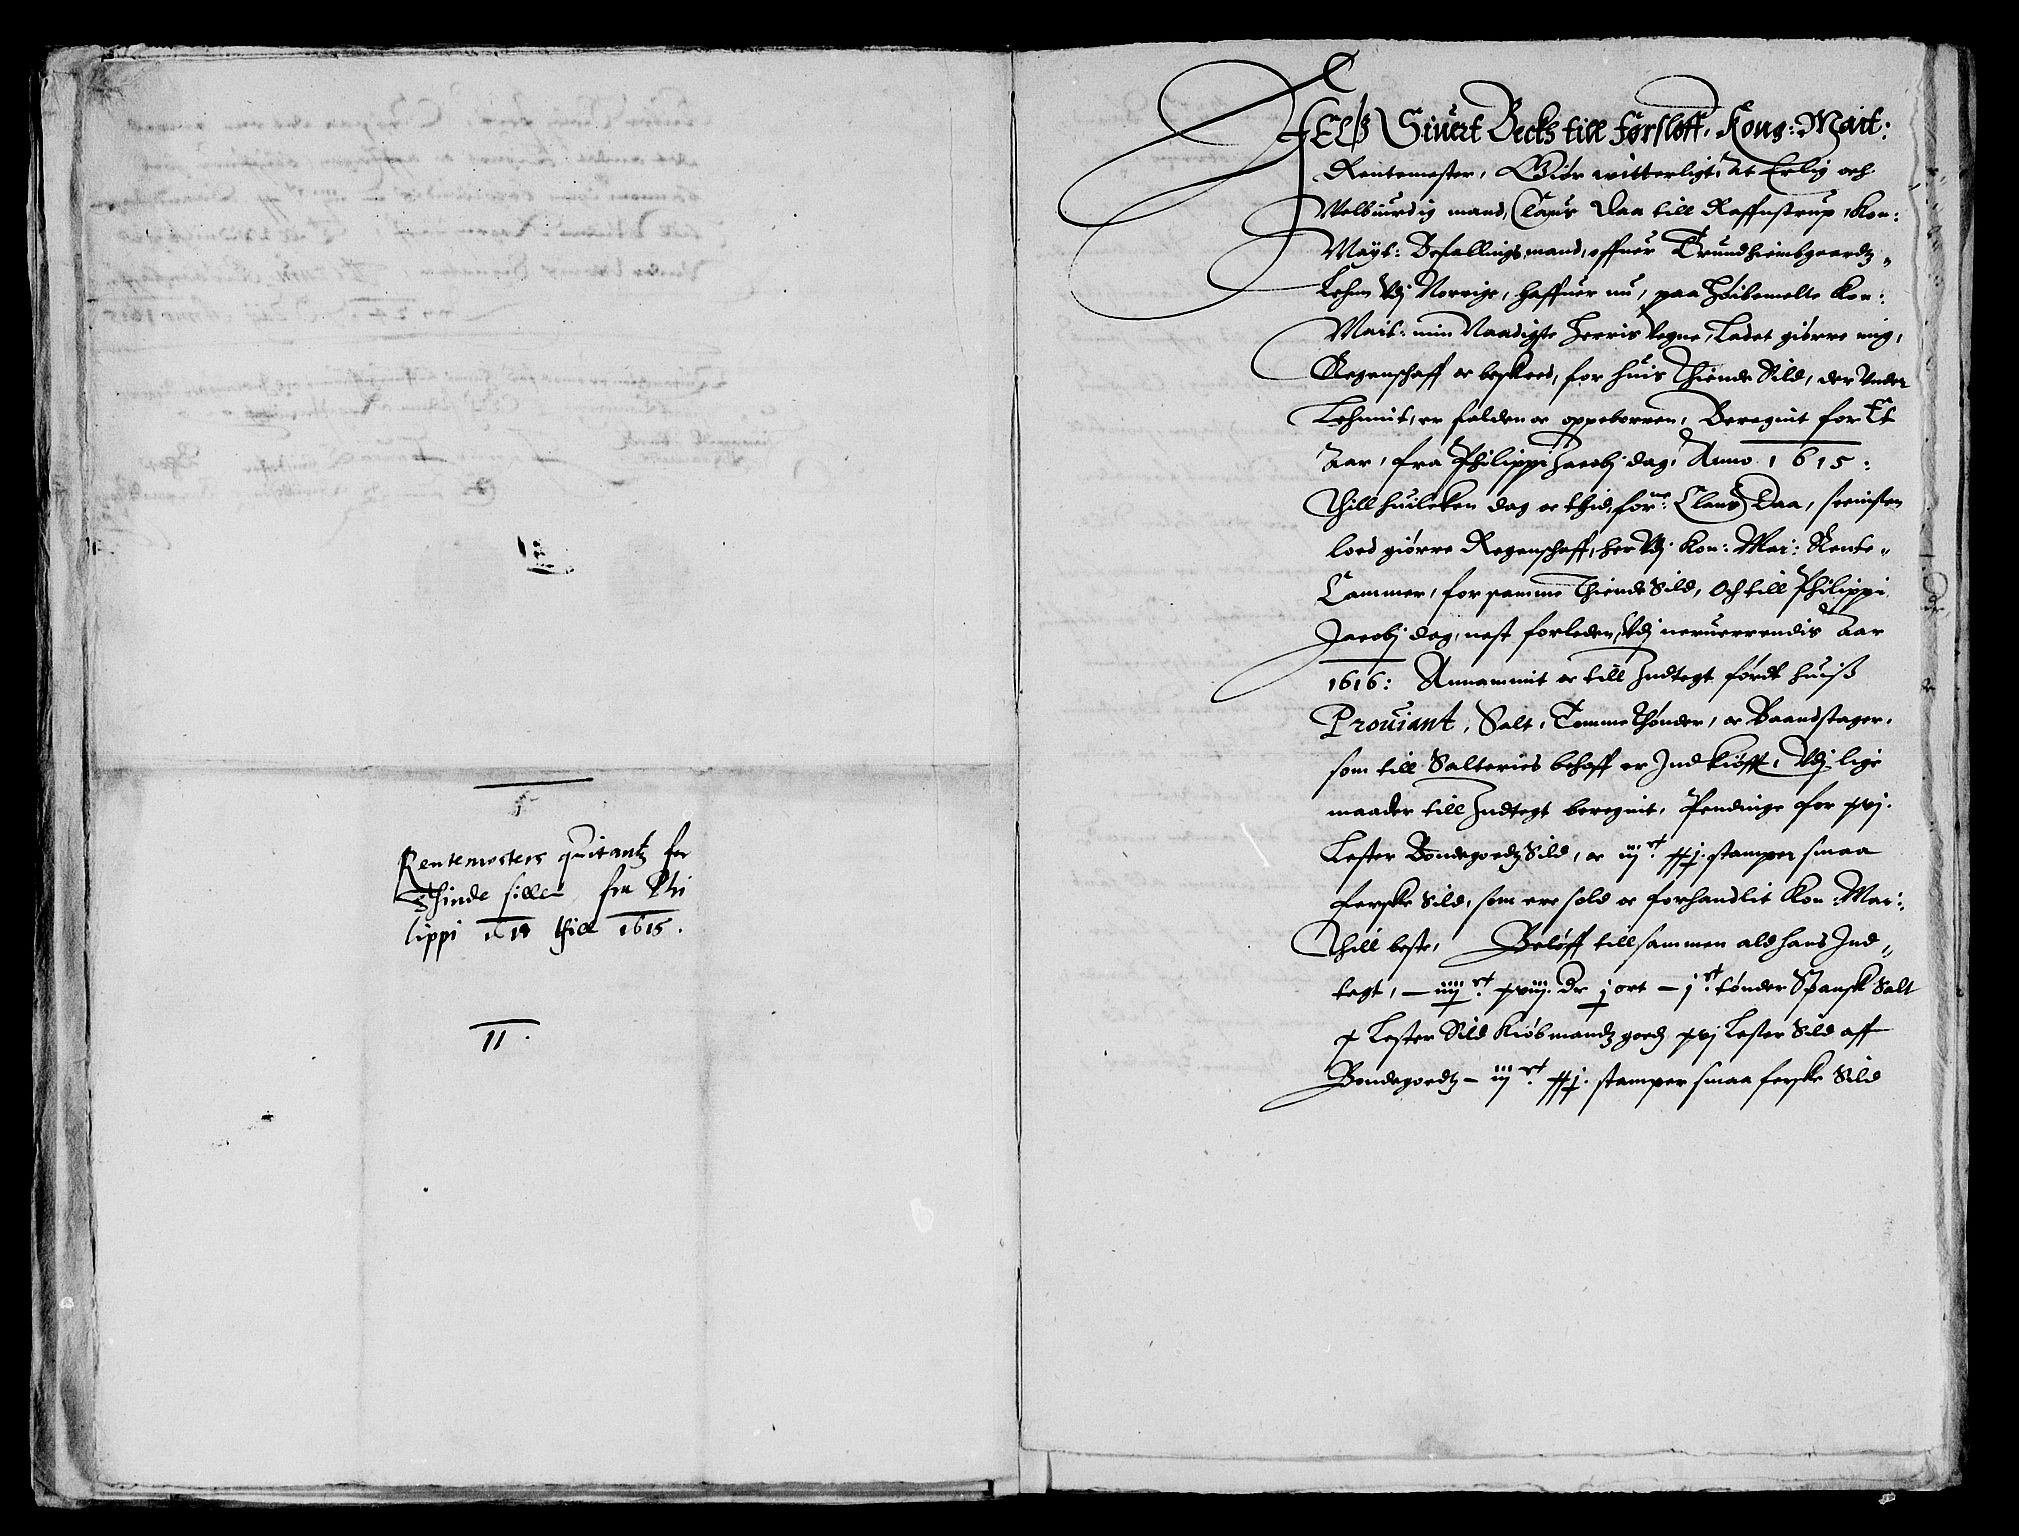 Rentemesters quitantz for
thinde sille fra Phi
lippi 1614 till 1615.
11.
JEG Siuert Becks till Førsløff, Kong: Mait:
Rentemester, Giør witterligt, At Erlig och
Velbiurdig mand, Claus Daa till Raffnstrup, Kon:
Mayt: Befallings mand, offuer Trundhiembgaardz
Lehen Vdj Norrige, haffuer nu, paa Høibemelte Kon:
Mait: min Naadigste Herris Vegne, Ladet giørre mig,
Regenschaff oc beskeed, for huis Thiende Sild, der Vnder
Lehnit, er falden oc oppeborren, Beregnit for Et
Aar, fra Philippi Jacobj dag, Anno 1615:
Thill huilcken dag oc thid, forne: Claus Daa, seenisten
loed giørre Regenschaff, her Vdj Kon: Mai: Rente
Cammer, for samme Thiende Sild, Och till Philippi
Jacobj dag, nest forleden, Vdj neruerrendis Aar
1616: Annammit oc till Indtegt førdt huiß
Prouiant, Salt, Tomme Thønder, oc Baandstager,
som till Salteries behoff er Indkiøfft, Vdj lige
maader till Indtegt beregnit, Pendinge for xvj.
Lester Bondegodtz Sild, oc iijc. xxj. stamper smaa
ferske Sild, som ere sold oc forhandlit Kon: Mai:
Thill beste, Beløff tillsammen ald hans Ind
tegt, — iiijc. xviij. Dr j ort — jc. tønder Spansk Salt
x Lester Sild Kiøbmandtz godz xvj Lester Sild aff
Bondegodtz — iijc. xxj. stamper smaa ferske Sild